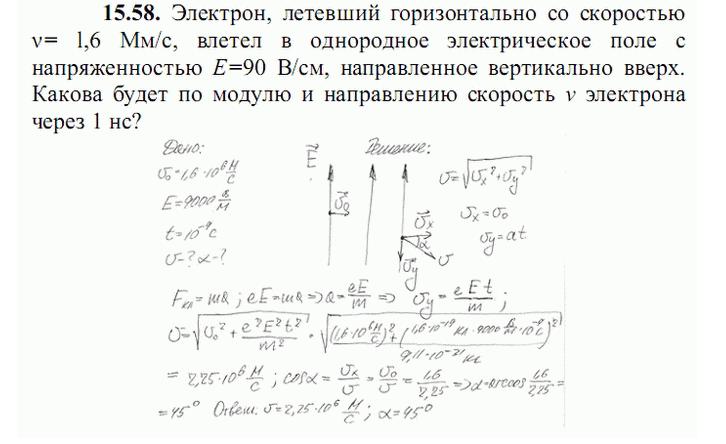 15.58. Электрон, летевший горизонтально со скоростью
v= 1,6 Мм/с, влетел в однородное электрическое поле с
напряженностью E=90 В/см, направленное вертикально вверх.
Какова будет по модулю и направлению скорость v электрона
через 1 нс?
Дано: Решение:
υ₀=1,6·10⁶ м/с
E=9000 в/м
t=10⁻⁹с
υ-? α-?
E⃗
υ⃗₀
υ⃗ₓ
α
υ⃗y
υ
υ=√(υₓ²+υy²)
υₓ=υ₀
υy=at
Fкл=ma; eE=ma=>a=eE/m => υy=eEt/m;
υ=√(υ₀²+e²E²t²/m²) = √((1,6·10⁶ м/с)²+(1,6·10⁻¹⁹ Кл·9000 в/м·10⁻⁹с/9,11·10⁻³¹ кг)²)
= 2,25·10⁶ м/с; cosα=υₓ/υ=υ₀/υ=1,6/2,25=>α=arccos 1,6/2,25=
=45° Ответ: υ=2,25·10⁶ м/с; α=45°